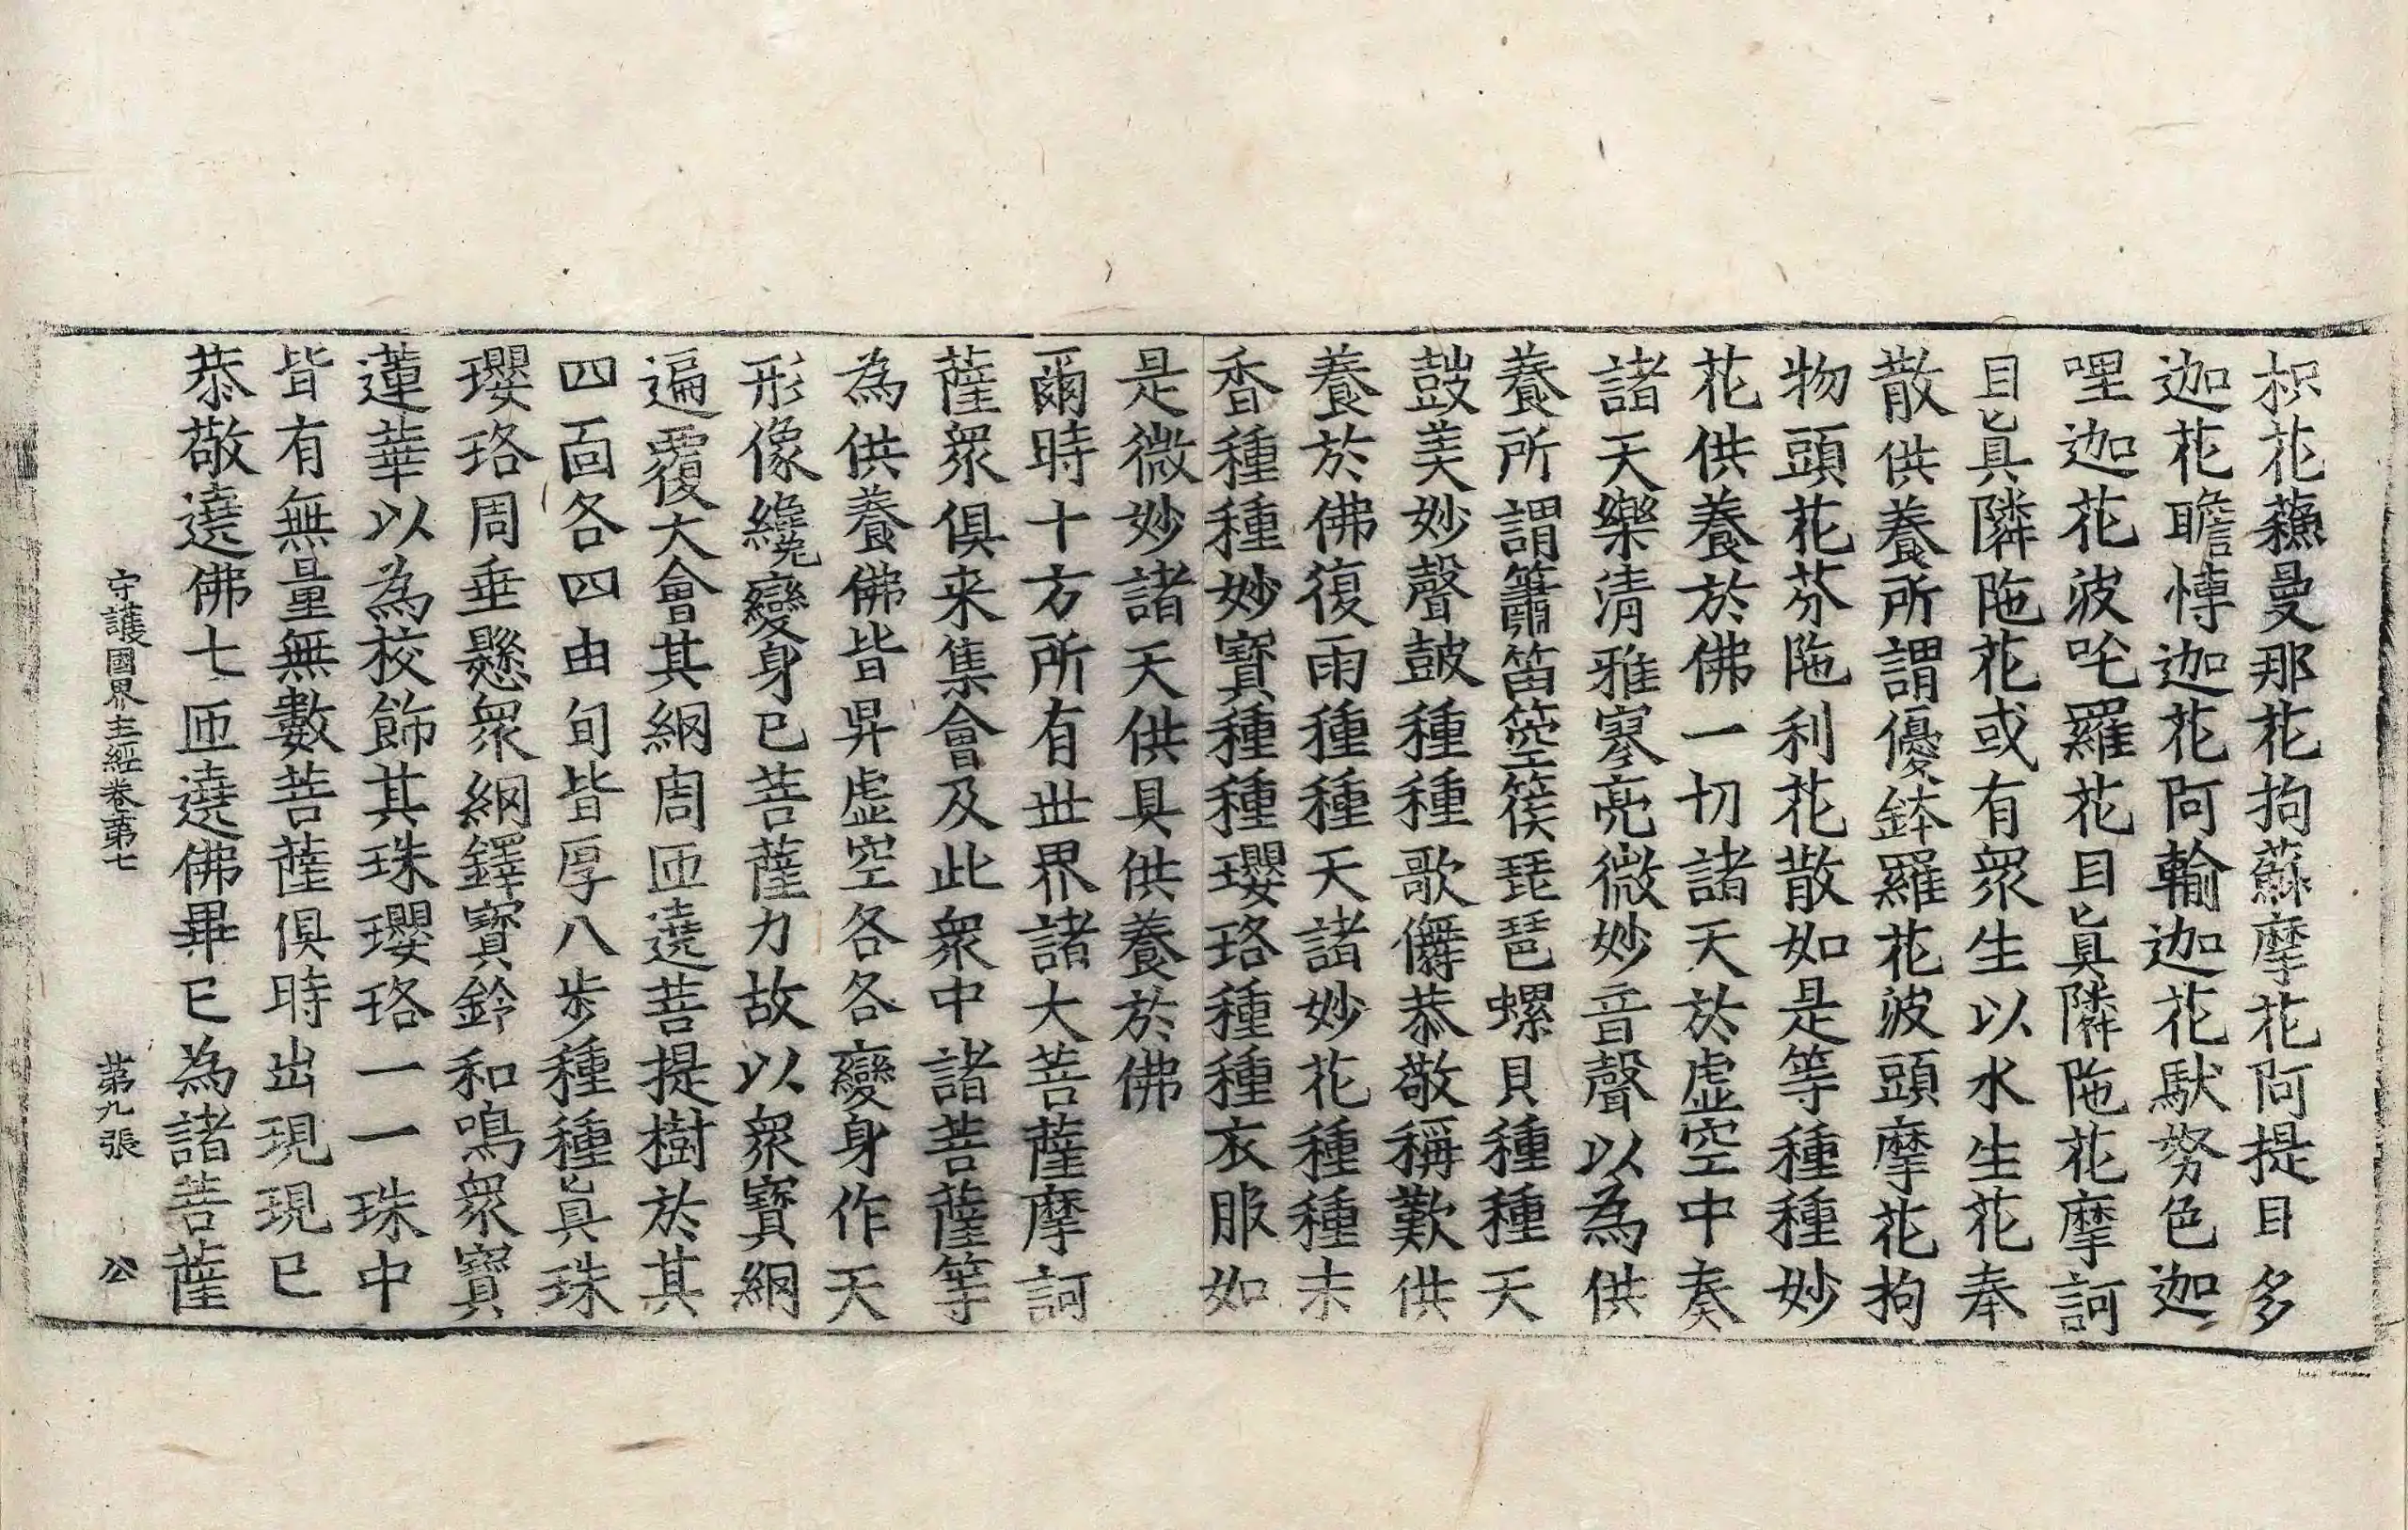 枳花蘓曼那花拘蘇摩花阿提目多
迦花瞻愽迦花阿輸迦花馱努色迦
哩迦花波吒羅花目眞隣陁花摩訶
目眞隣陁花或有衆生以水生花奉
散供養所謂優鉢羅花波頭摩花拘
物頭花芬陁利花散如是等種種妙
花供養於佛一切諸天於虛空中奏
諸天樂清雅寥亮微妙音聲以為供
養所謂簫笛箜篌琵琶螺貝種種天
鼓美妙聲鼓種種歌儛恭敬稱歎供
養於佛復雨種種天諸妙花種種末
香種種妙寳種種瓔珞種種衣服如
是微妙諸天供具供養於佛
爾時十方所有世界諸大菩薩摩訶
薩衆俱来集會及此衆中諸菩薩等
為供養佛皆昇虛空各各變身作天
形像纔變身已菩薩力故以衆寶網
遍覆大會其網周匝遶菩提樹於其
四面各四由旬皆厚八步種種眞珠
瓔珞周垂懸衆網鐸寶鈴和鳴衆寶
蓮華以為校飾其珠瓔珞一一珠中
皆有無量無數菩薩俱時出現現已
恭敬遶佛七匝遶佛畢已為諸菩薩
守護國界主經卷第七 第九張 公